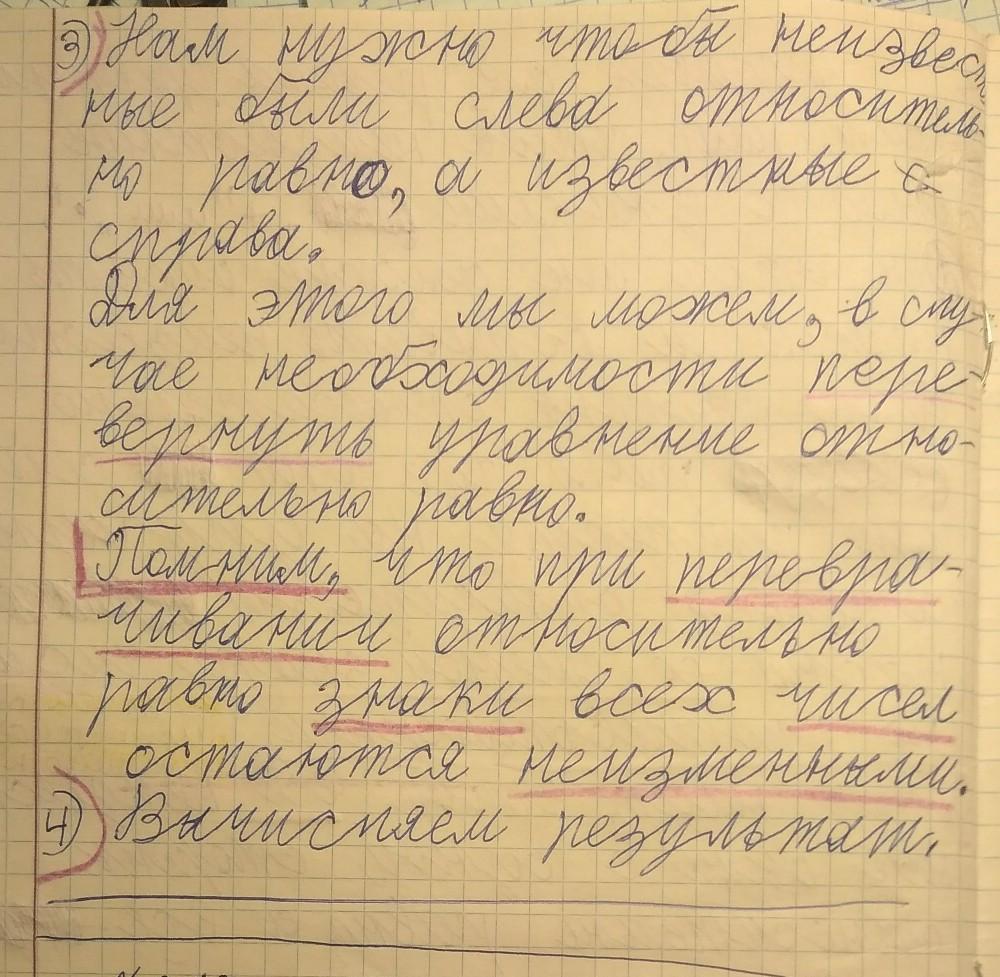 3) Нам нужно чтобы неизвест-
ные были слева относитель-
но равно, а известные с
справа.
Для этого мы можем, в слу-
чае необходимости пере-
вернуть уравнение отно-
сительно равно.
Помним, что при перевра-
чивании относительно
равно знаки всех чисел
остаются неизменными.
4) Вычисляем результат.